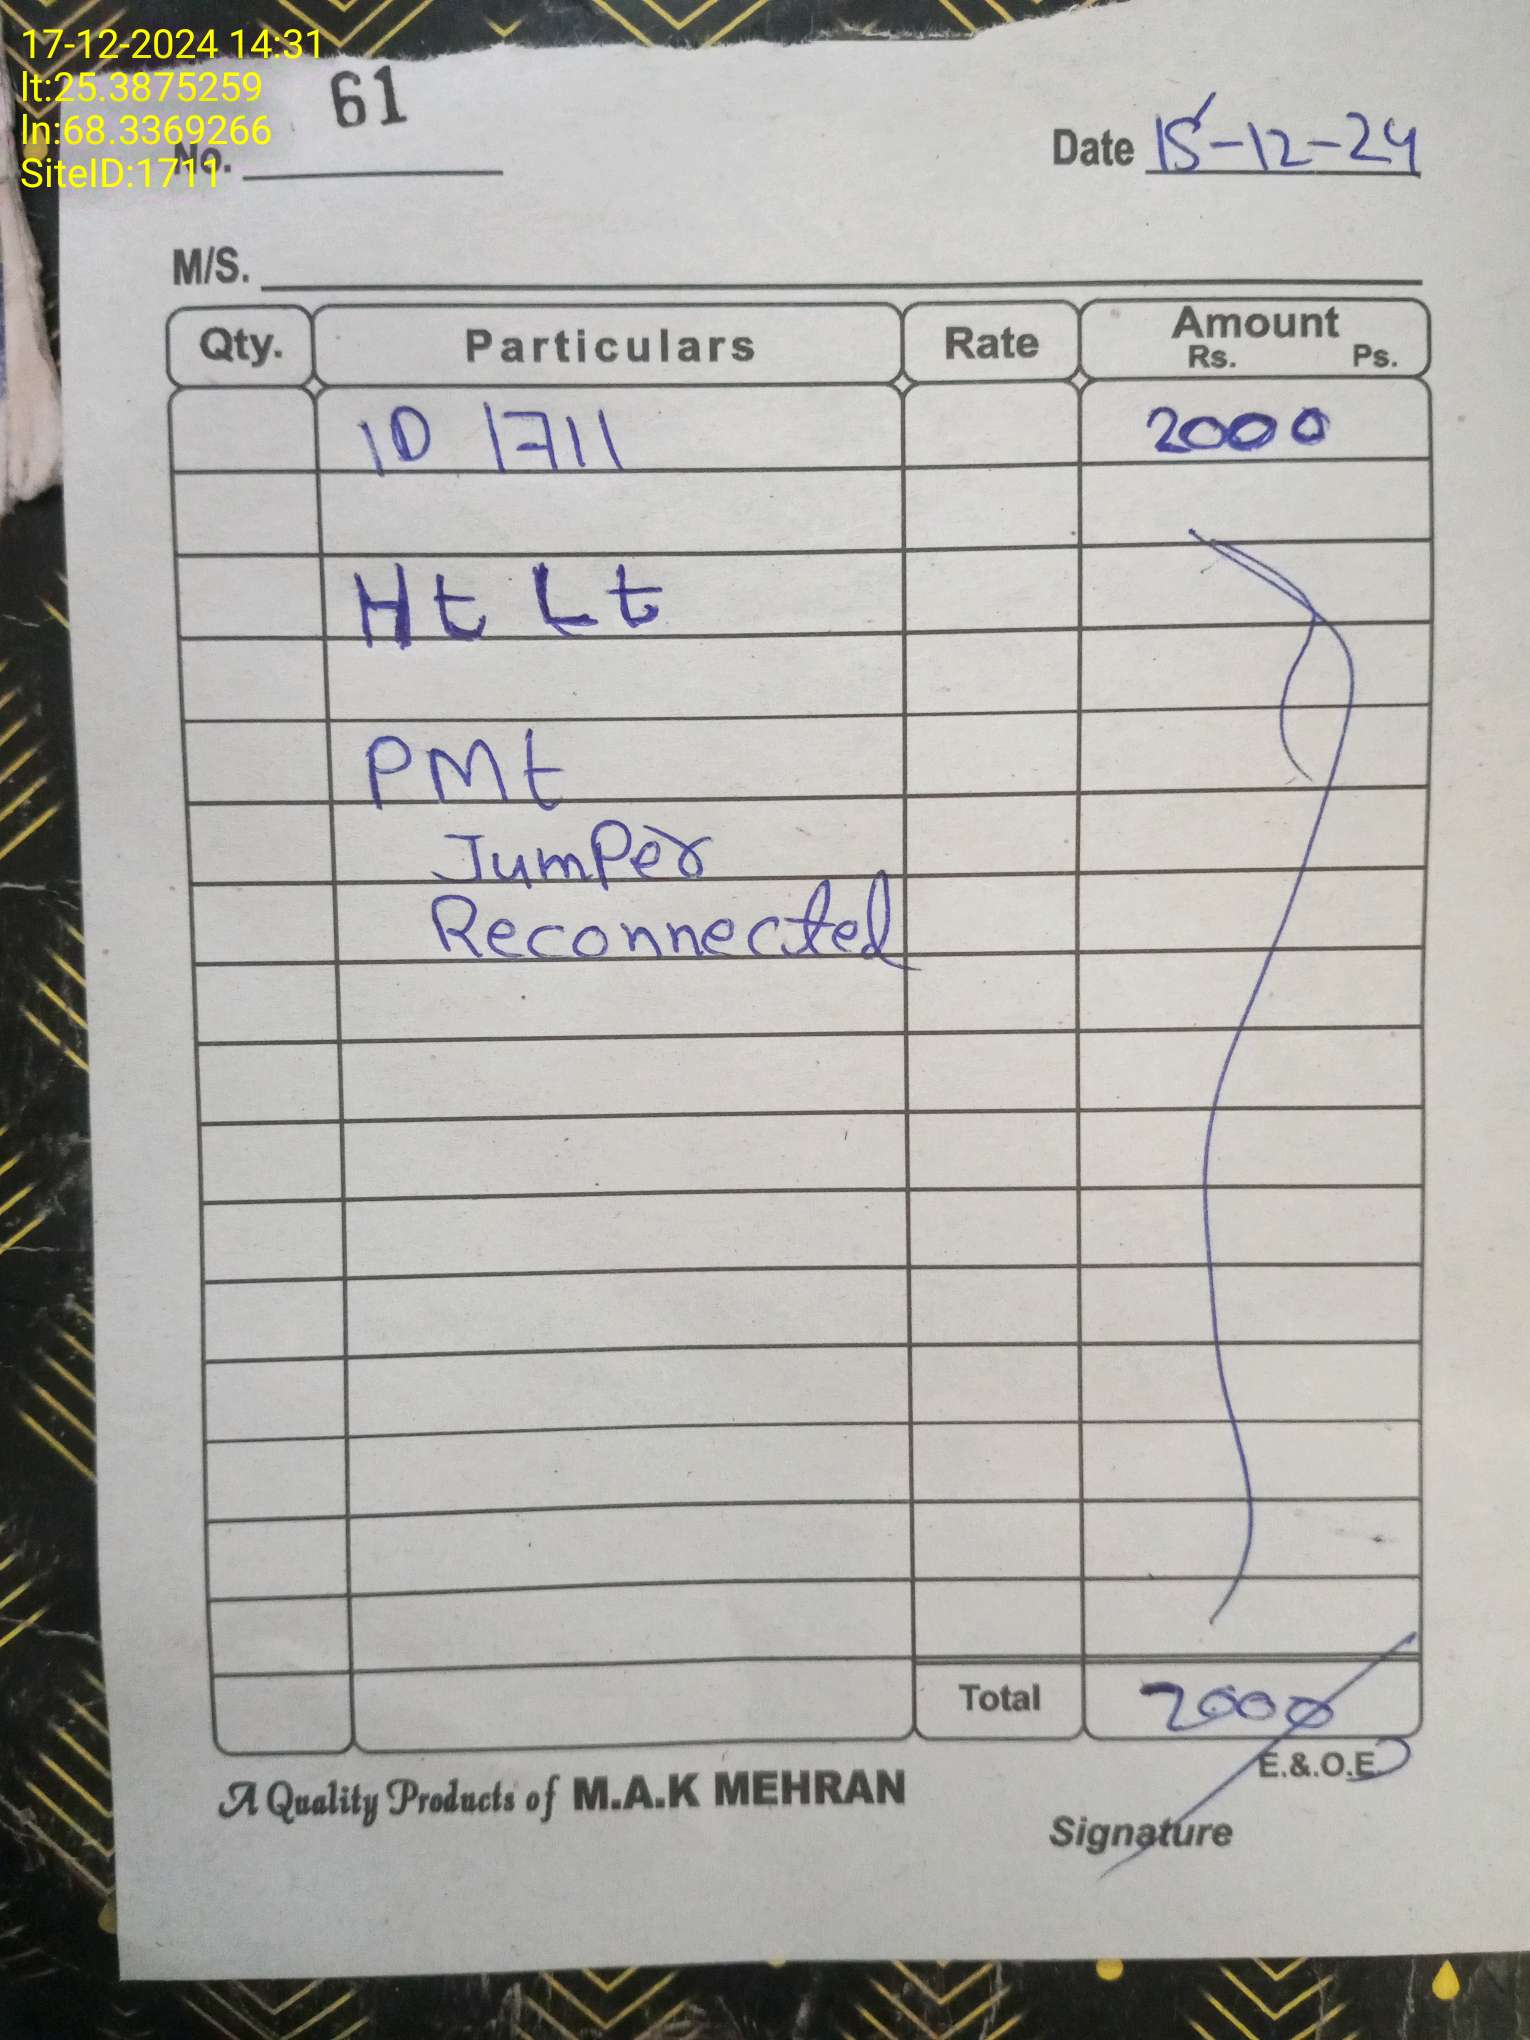 17-12-2024 14:31
lt:25.3875259
ln:68.3369266
SiteID:1711
61
No.
Date 15-12-24
M/S.
Qty. Particulars Rate Amount
Rs. Ps.
ID 1711 2000
Ht Lt
PMt
Jumper
Reconnected
Total 2000
E.&.O.E
A Quality Products of M.A.K MEHRAN
Signature